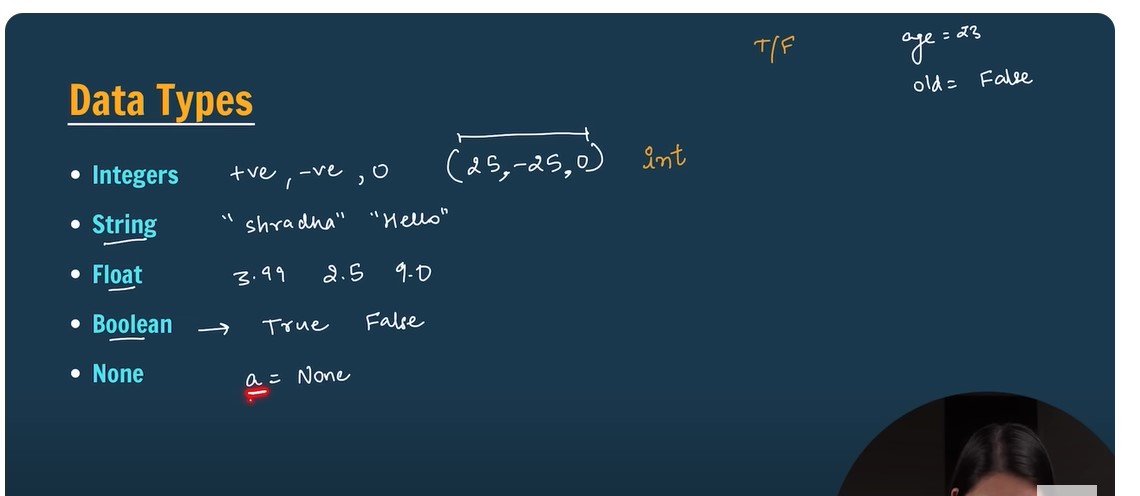 T/F
age = 23
old = False
Data Types
• Integers +ve, -ve, 0 (25, -25, 0) int
• String "shradha" "Hello"
• Float 3.99 2.5 9.0
• Boolean → True False
• None a = None